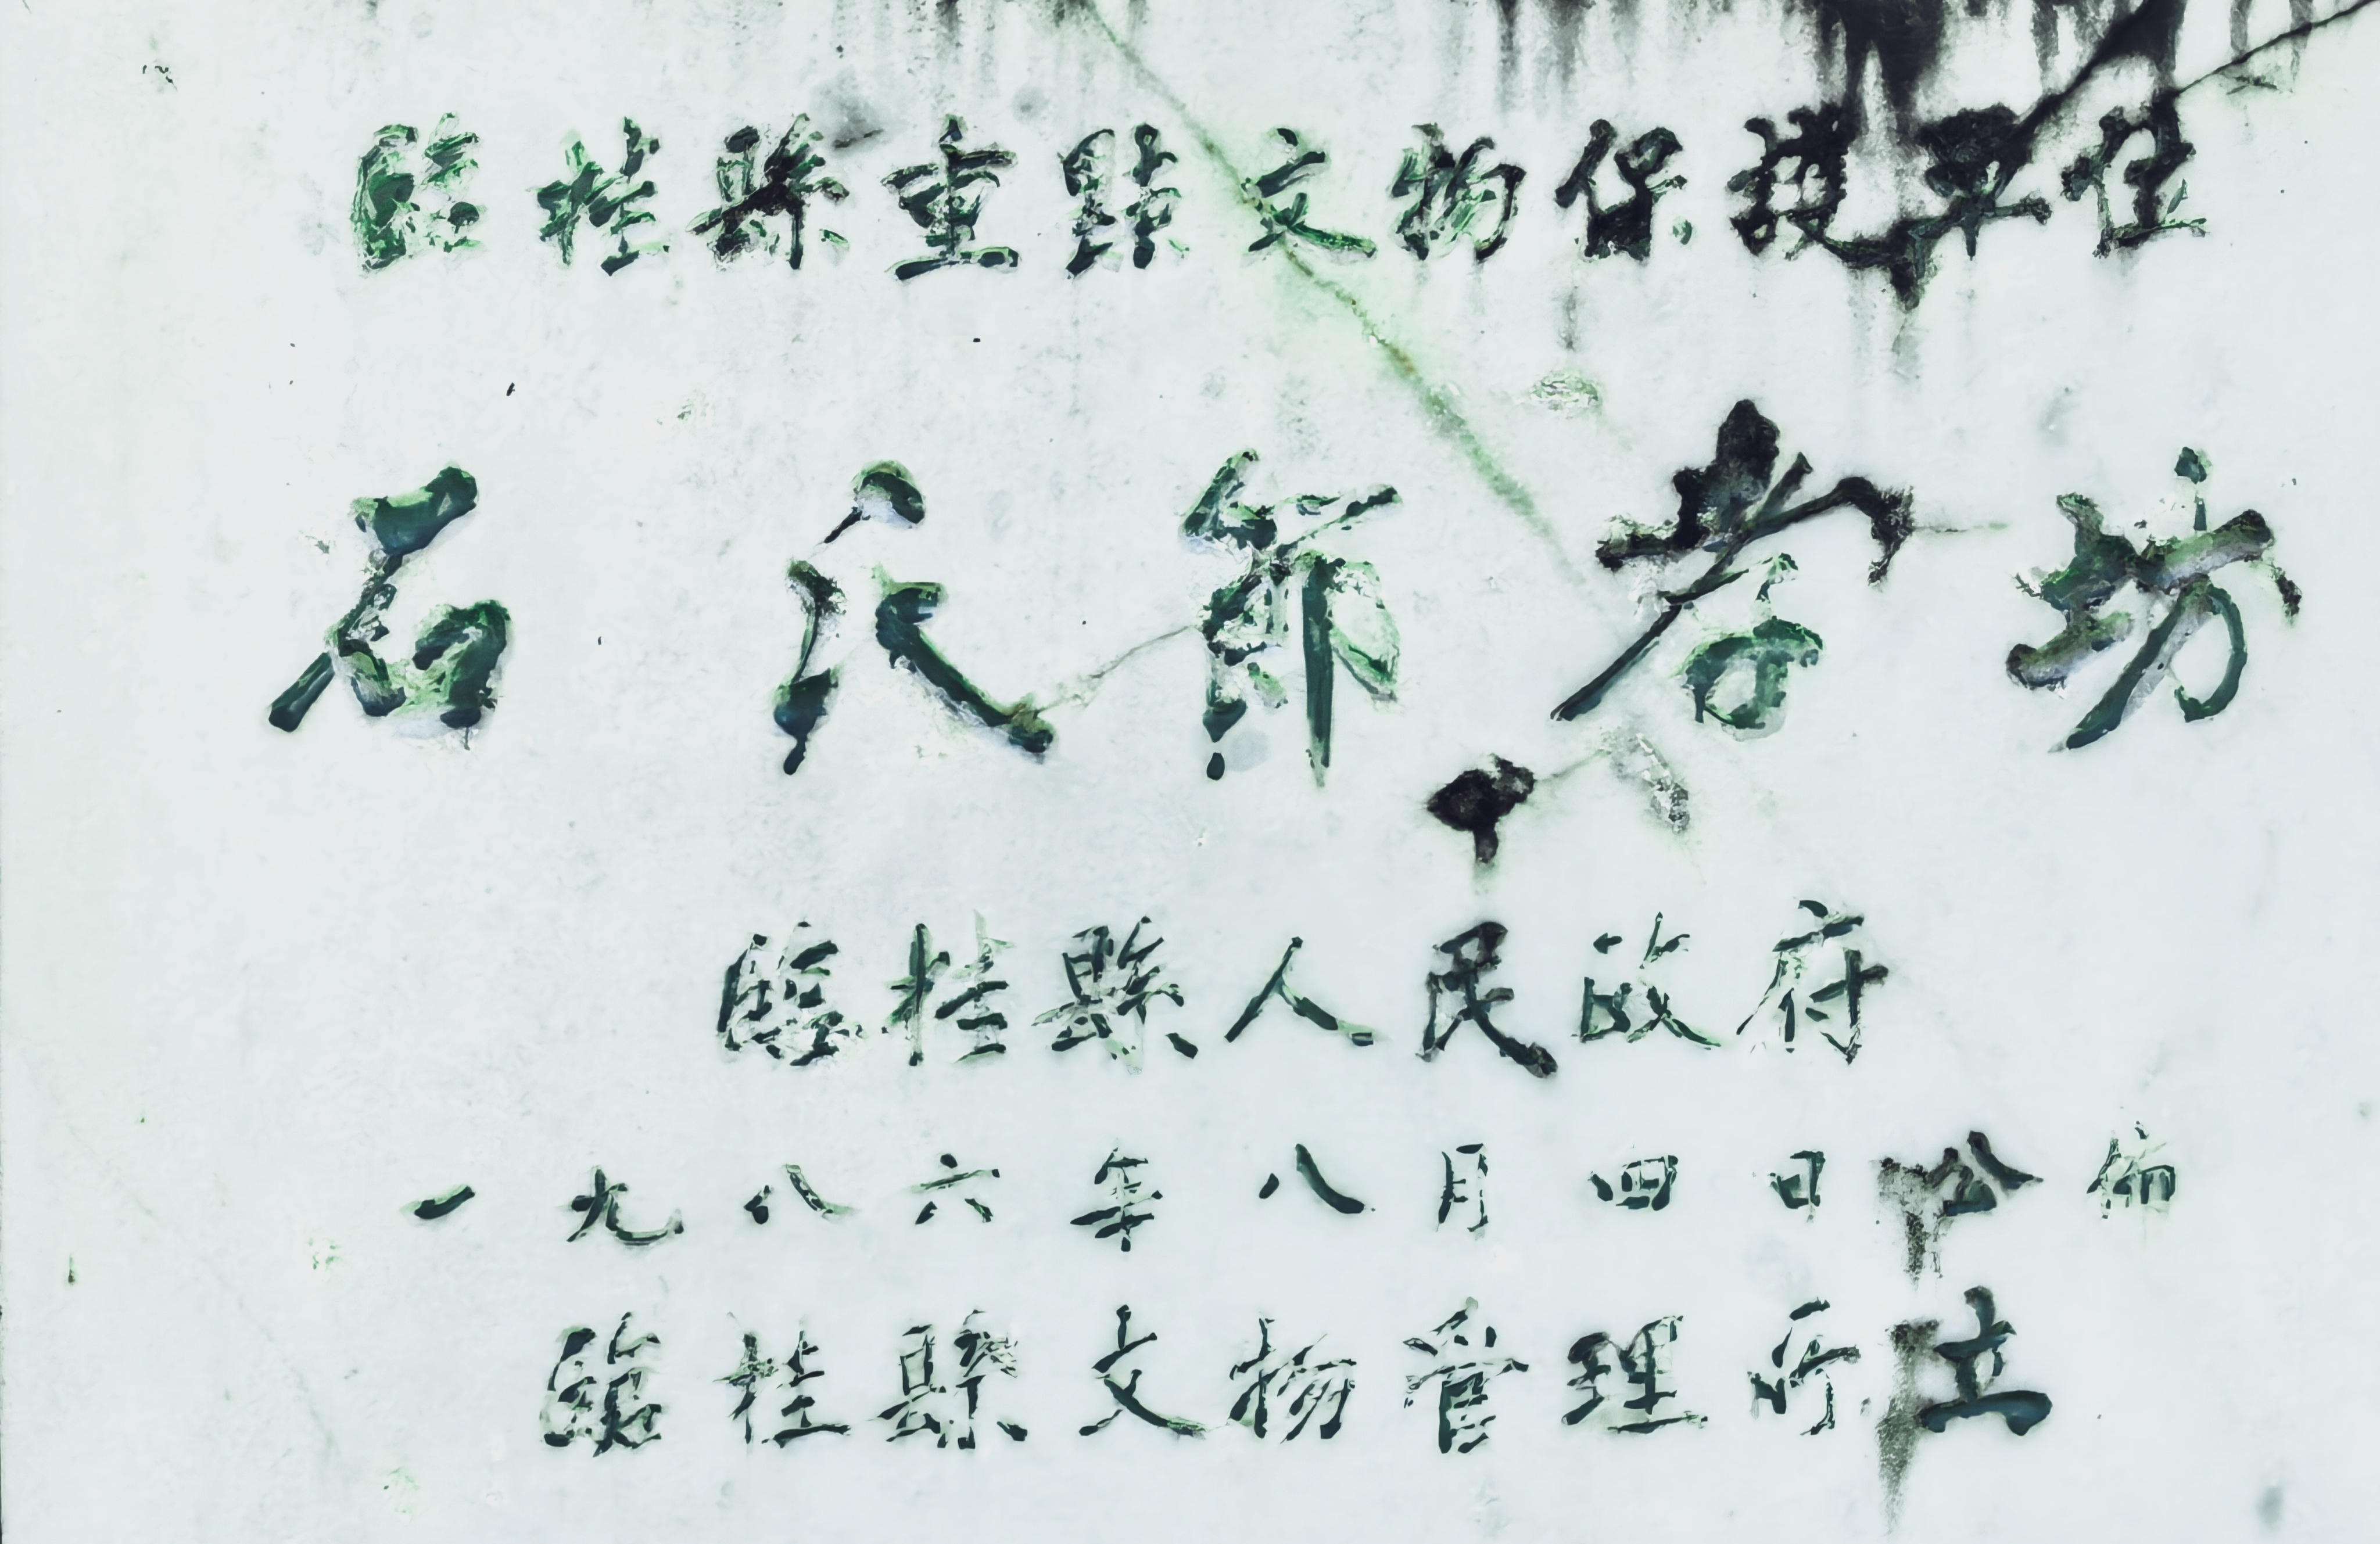 臨桂縣重點文物保護單位
石氏節孝坊
臨桂縣人民政府
一九八六年八月四日公佈
臨桂縣文物管理所立